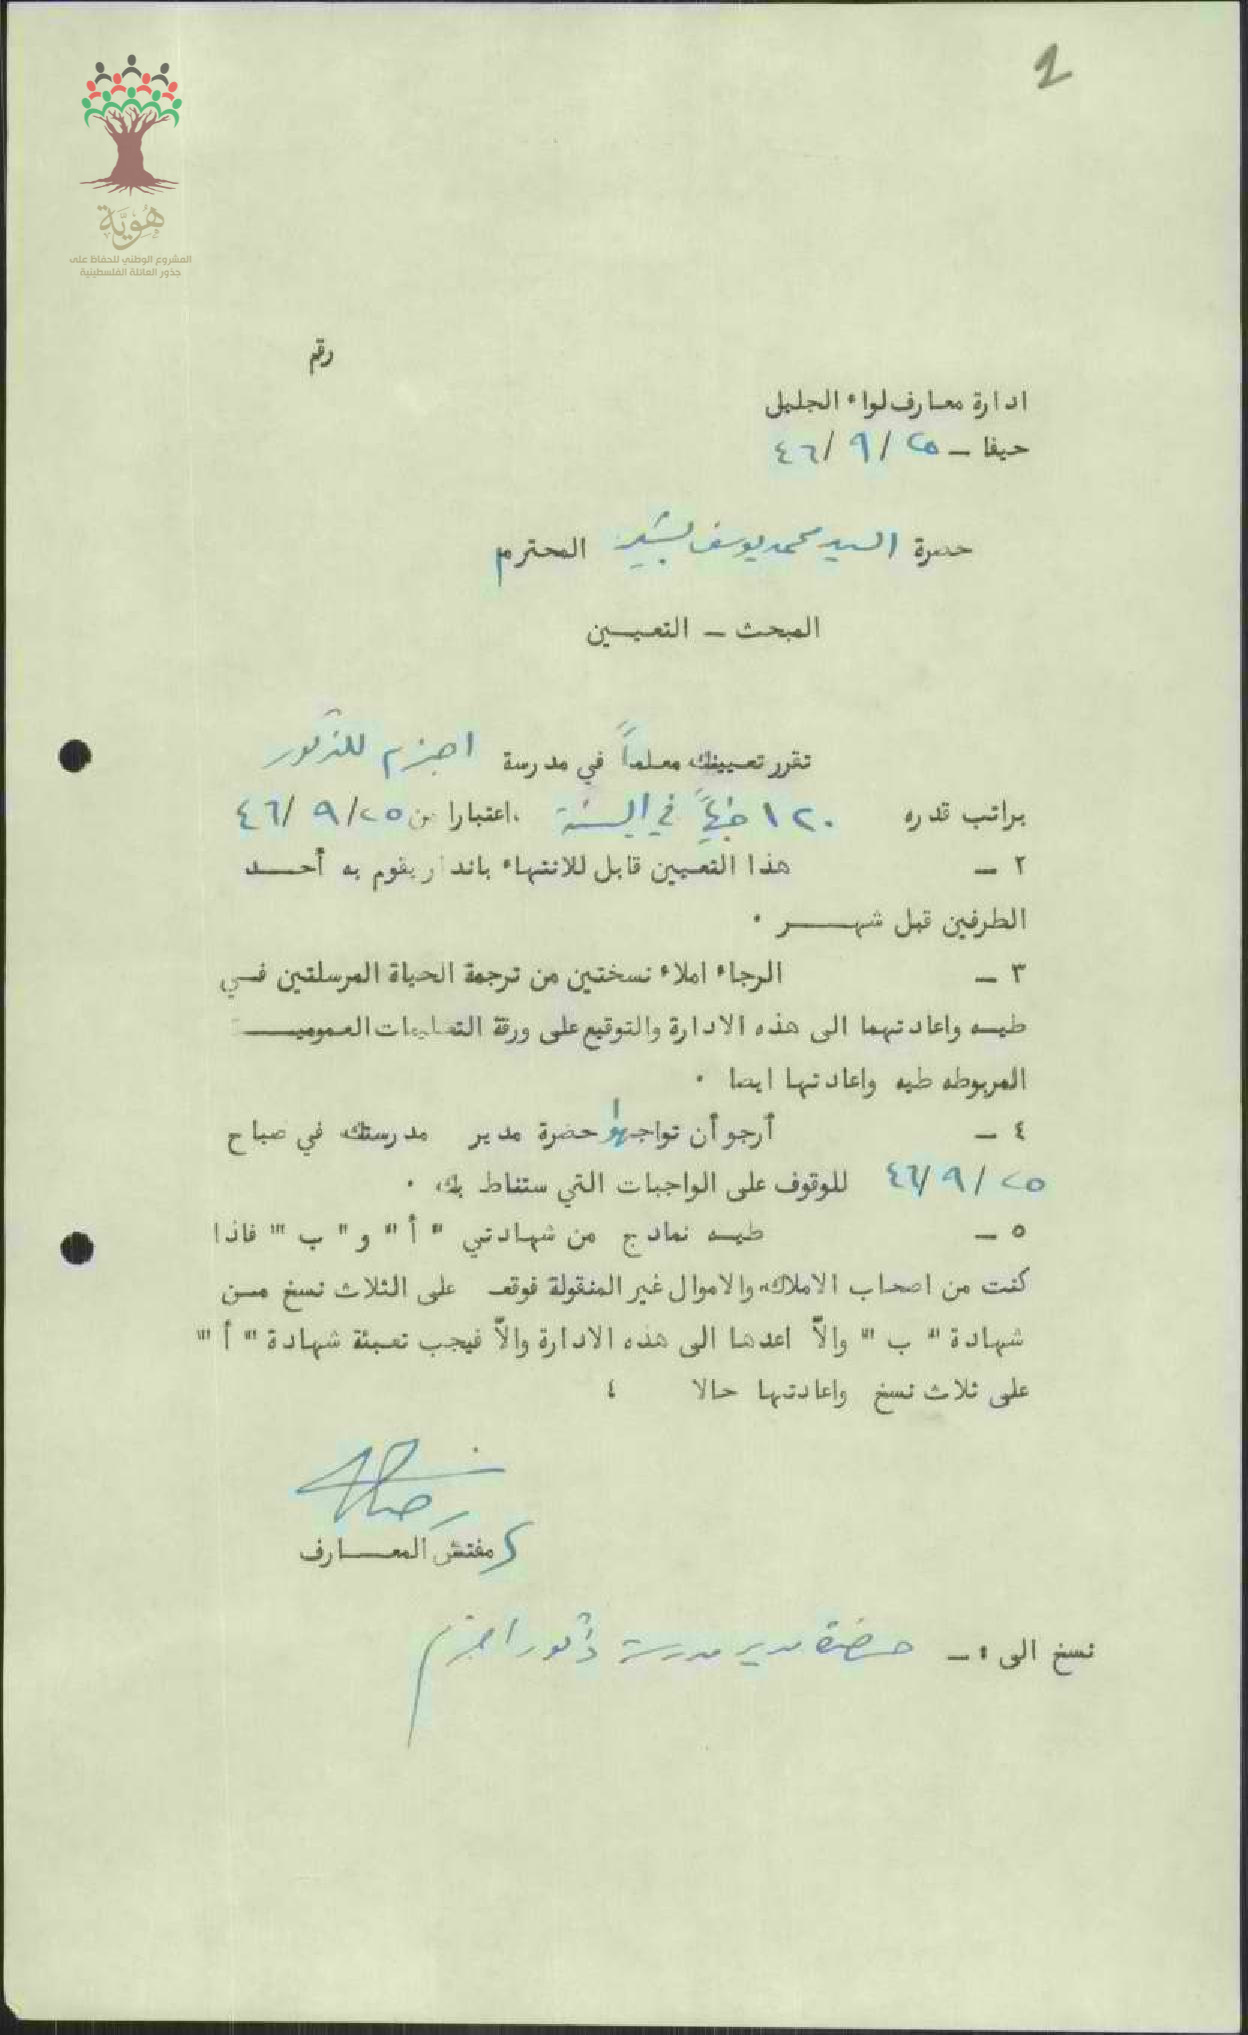 2
هُوِيَّة
المشروع الوطني للحفاظ على
جذور العائلة الفلسطينية
رقم
ادارة معارف لواء الجليل
حيفا – ٢٥ / ٩ / ٤٦
حضرة السيد محمد يوسف بشير المحترم
المبحث – التعيـــين
تقرر تعيينك معلماً في مدرسة اجزم للذكور
براتب قدره ١٢٠ جنيهاً في السنة ، اعتبارا من ٢٥ / ٩ / ٤٦
٢ – هذا التعيين قابل للانتهاء بانذار يقوم به أحـــد
الطرفين قبل شهـــر ٠
٣ – الرجاء املاء نسختين من ترجمة الحياة المرسلتين فــي
طيــه واعادتهما الى هذه الادارة والتوقيع على ورقة التعليمات العموميـــة
المربوطه طيه واعادتها ايضا ٠
٤ – أرجو أن تواجهوا حضرة مدير مدرستك في صباح
٢٥ / ٩ / ٤٦ للوقوف على الواجبات التي ستناط بك ٠
٥ – طيــه نماذج من شهادتي " أ " و " ب " فاذا
كنت من اصحاب الاملاك والاموال غير المنقولة فوقع على الثلاث نسخ مــن
شهادة " ب " والاّ اعدها الى هذه الادارة والاّ فيجب تعبئة شهادة " أ "
على ثلاث نسخ واعادتها حالا ٤
مفتش المعـــارف
نسخ الى : – حضرة مدير مدرسة ذكور اجزم